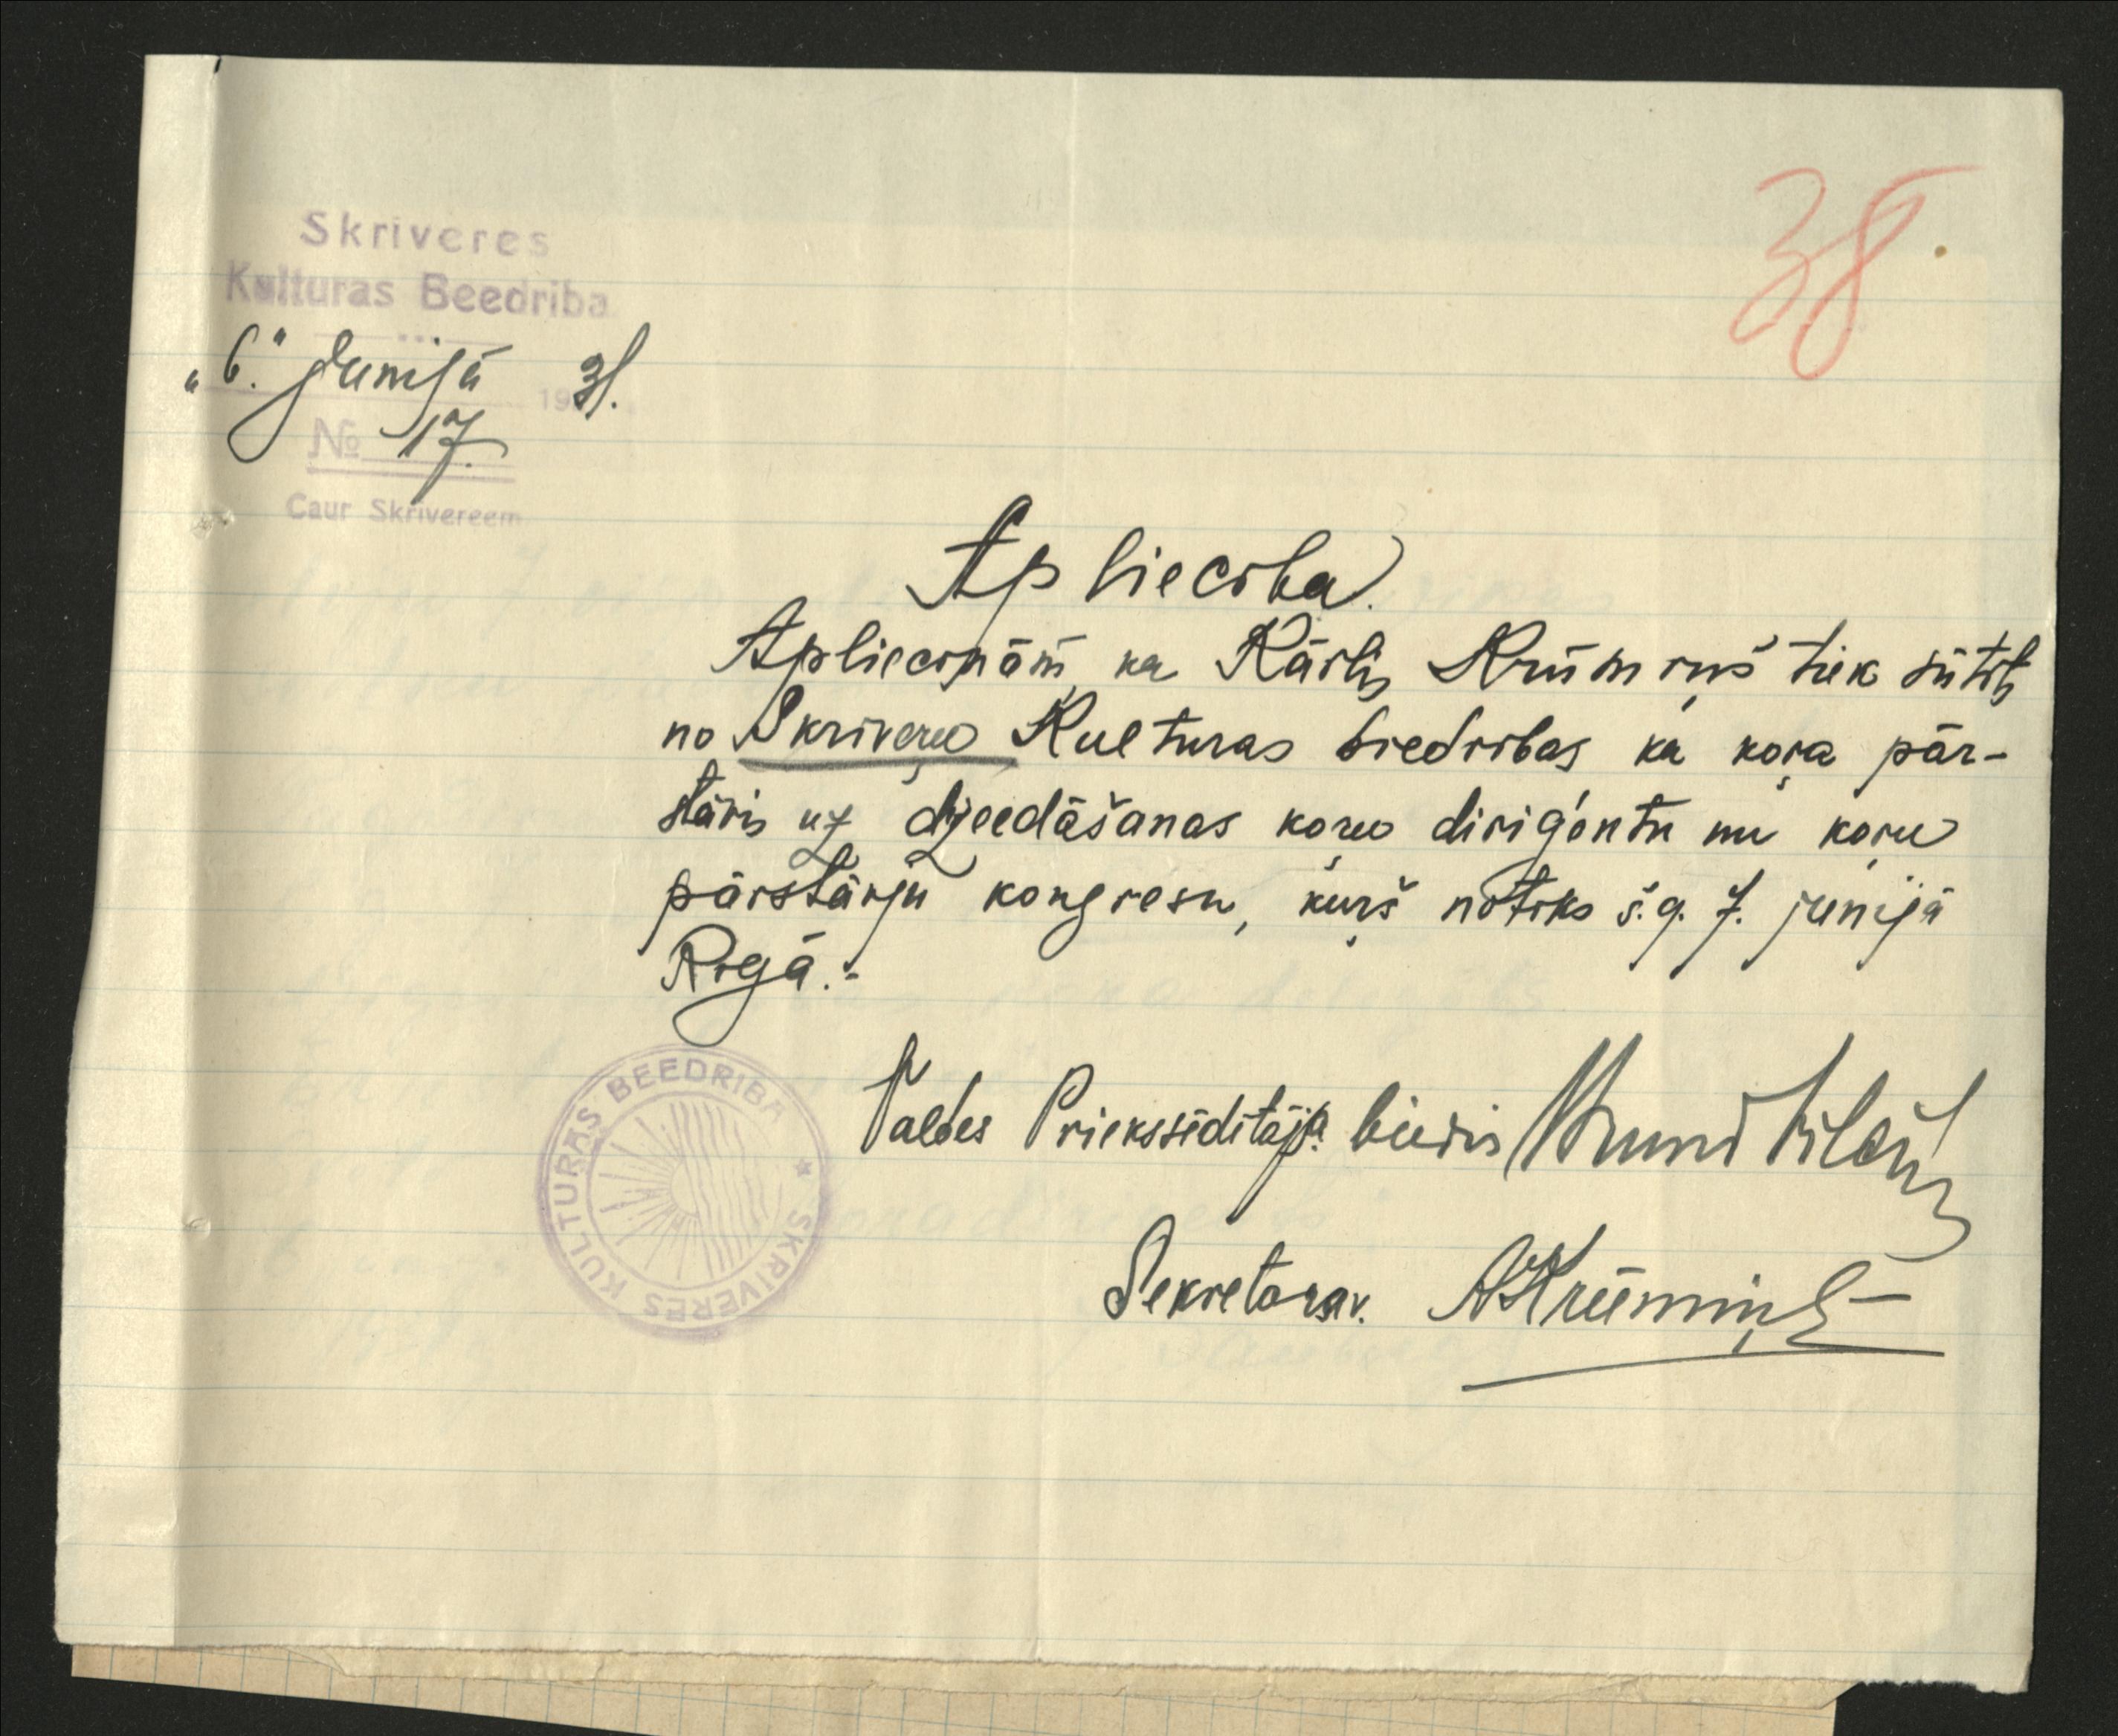 Skriveres
Kulturas Beedriba
38.
"6." Junijā 1931.
№ 17.
Caur Skrivereem
Apliecība.
Apliecinām, ka Kārlis Krūmiņš tiek sūtīts
no Skriveŗu Kulturas biedrības kā koŗa pār-
stāvis uz dzeedāšanas koŗu diriģentu un koŗu
pārstāvju kongresu, kuŗš notiks š.g. 7. junijā
Rīgā.-
Valdes Priekssēdētāja biedris
Sekretara v. AKrūmiņš
SKRIVERES KULTURAS BEEDRIBA